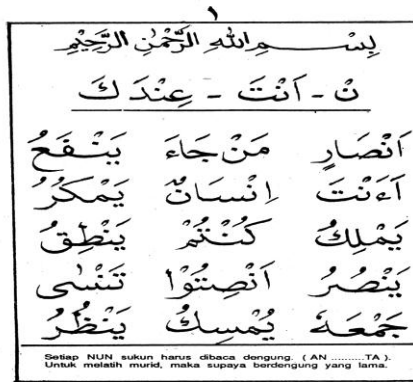 ١
بِسْمِ اللهِ الرَّحْمٰنِ الرَّحِيْمِ
نْ - اَنْتَ - عِنْدَكَ
اَنْصَارٍ مَنْ جَاءَ يَنْفَعُ
ءَاَنْتَ اِنْسَانٌ يَمْكُرُ
يَمْلِكُ كُنْتُمْ يَنْطِقُ
يَنْصُرُ اَنْصِتُوْا تَنْسٰى
جَمْعَهٗ يُمْسِكُ يَنْظُرُ
Setiap NUN sukun harus dibaca dengung. ( AN .........TA ).
Untuk melatih murid, maka supaya berdengung yang lama.